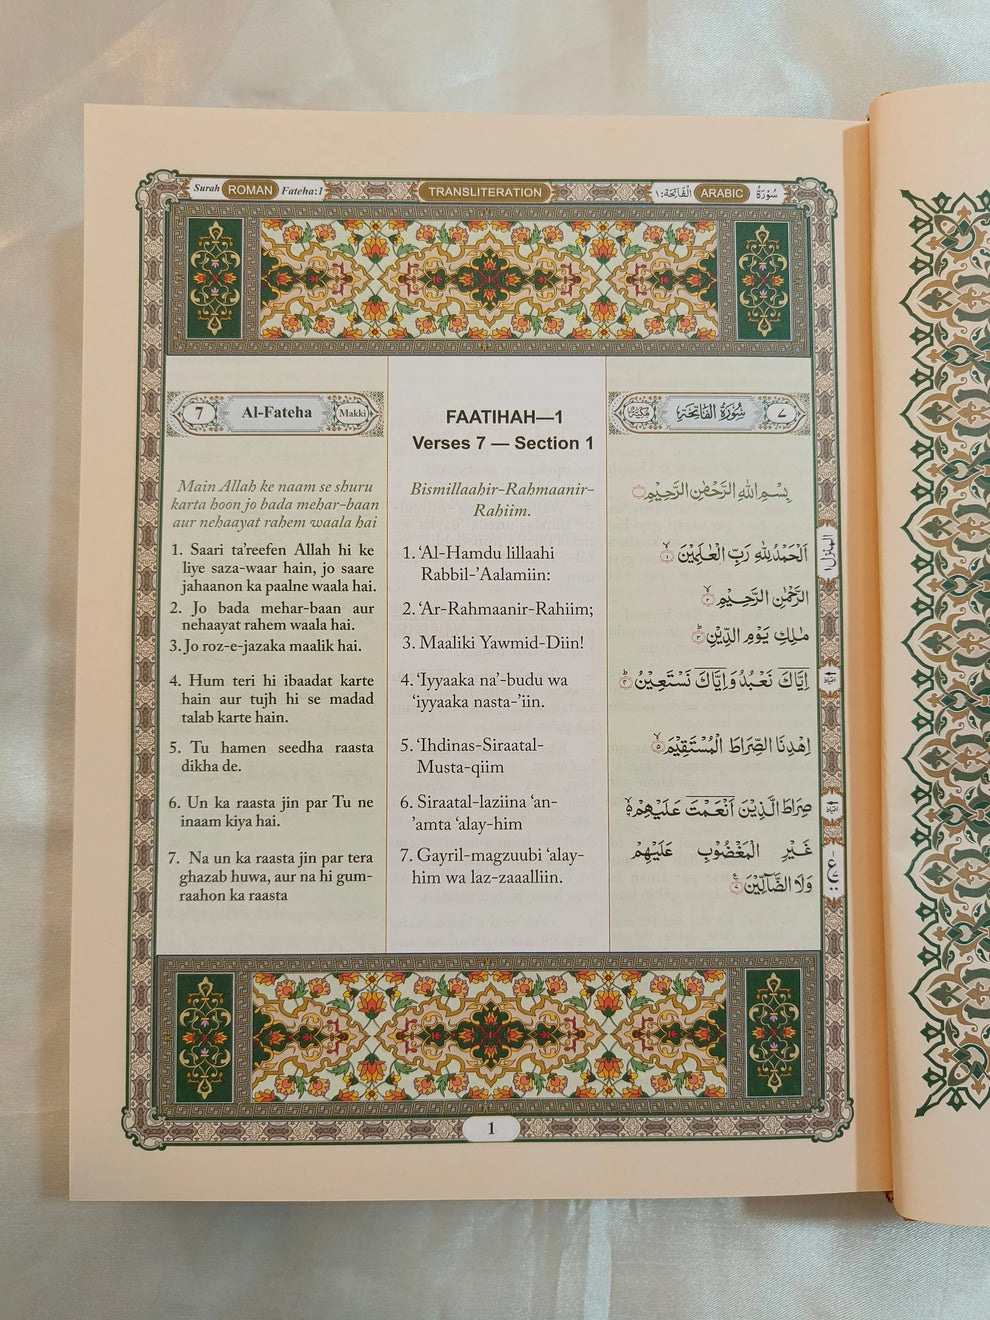 Surah ROMAN Fateha:1
TRANSLITERATION
سُوْرَةُ ARABIC الْفَاتِحَة:١
7 Al-Fateha Makki
Main Allah ke naam se shuru
karta hoon jo bada mehar-baan
aur nehaayat rahem waala hai
1. Saari ta'reefen Allah hi ke
liye saza-waar hain, jo saare
jahaanon ka paalne waala hai.
2. Jo bada mehar-baan aur
nehaayat rahem waala hai.
3. Jo roz-e-jazaka maalik hai.
4. Hum teri hi ibaadat karte
hain aur tujh hi se madad
talab karte hain.
5. Tu hamen seedha raasta
dikha de.
6. Un ka raasta jin par Tu ne
inaam kiya hai.
7. Na un ka raasta jin par tera
ghazab huwa, aur na hi gum-
raahon ka raasta
FAATIHAH—1
Verses 7 — Section 1
Bismillaahir-Rahmaanir-
Rahiim.
1. ‘Al-Hamdu lillaahi
Rabbil-’Aalamiin:
2. ‘Ar-Rahmaanir-Rahiim;
3. Maaliki Yawmid-Diin!
4. ‘Iyyaaka na’-budu wa
‘iyyaaka nasta-’iin.
5. ‘Ihdinas-Siraatal-
Musta-qiim
6. Siraatal-laziina ‘an-
’amta ‘alay-him
7. Gayril-magzuubi ‘alay-
him wa laz-zaaalliin.
٧ سُوْرَةُ الْفَاتِحَةِ مَكِّيَّة
بِسْمِ اللهِ الرَّحْمٰنِ الرَّحِيْمِ
اَلْحَمْدُ لِلّٰهِ رَبِّ الْعٰلَمِيْنَ ۙ۝١
الرَّحْمٰنِ الرَّحِيْمِ ۙ۝٢
مٰلِكِ يَوْمِ الدِّيْنِ ۗ۝٣
اِيَّاكَ نَعْبُدُ وَاِيَّاكَ نَسْتَعِيْنُ ۗ۝٤
اِهْدِنَا الصِّرَاطَ الْمُسْتَقِيْمَ ۙ۝٥
صِرَاطَ الَّذِيْنَ اَنْعَمْتَ عَلَيْهِمْ ۙ۝٦
غَيْرِ الْمَغْضُوْبِ عَلَيْهِمْ
وَلَا الضَّآلِّيْنَ ۝٧
المنزل ١
ع
1